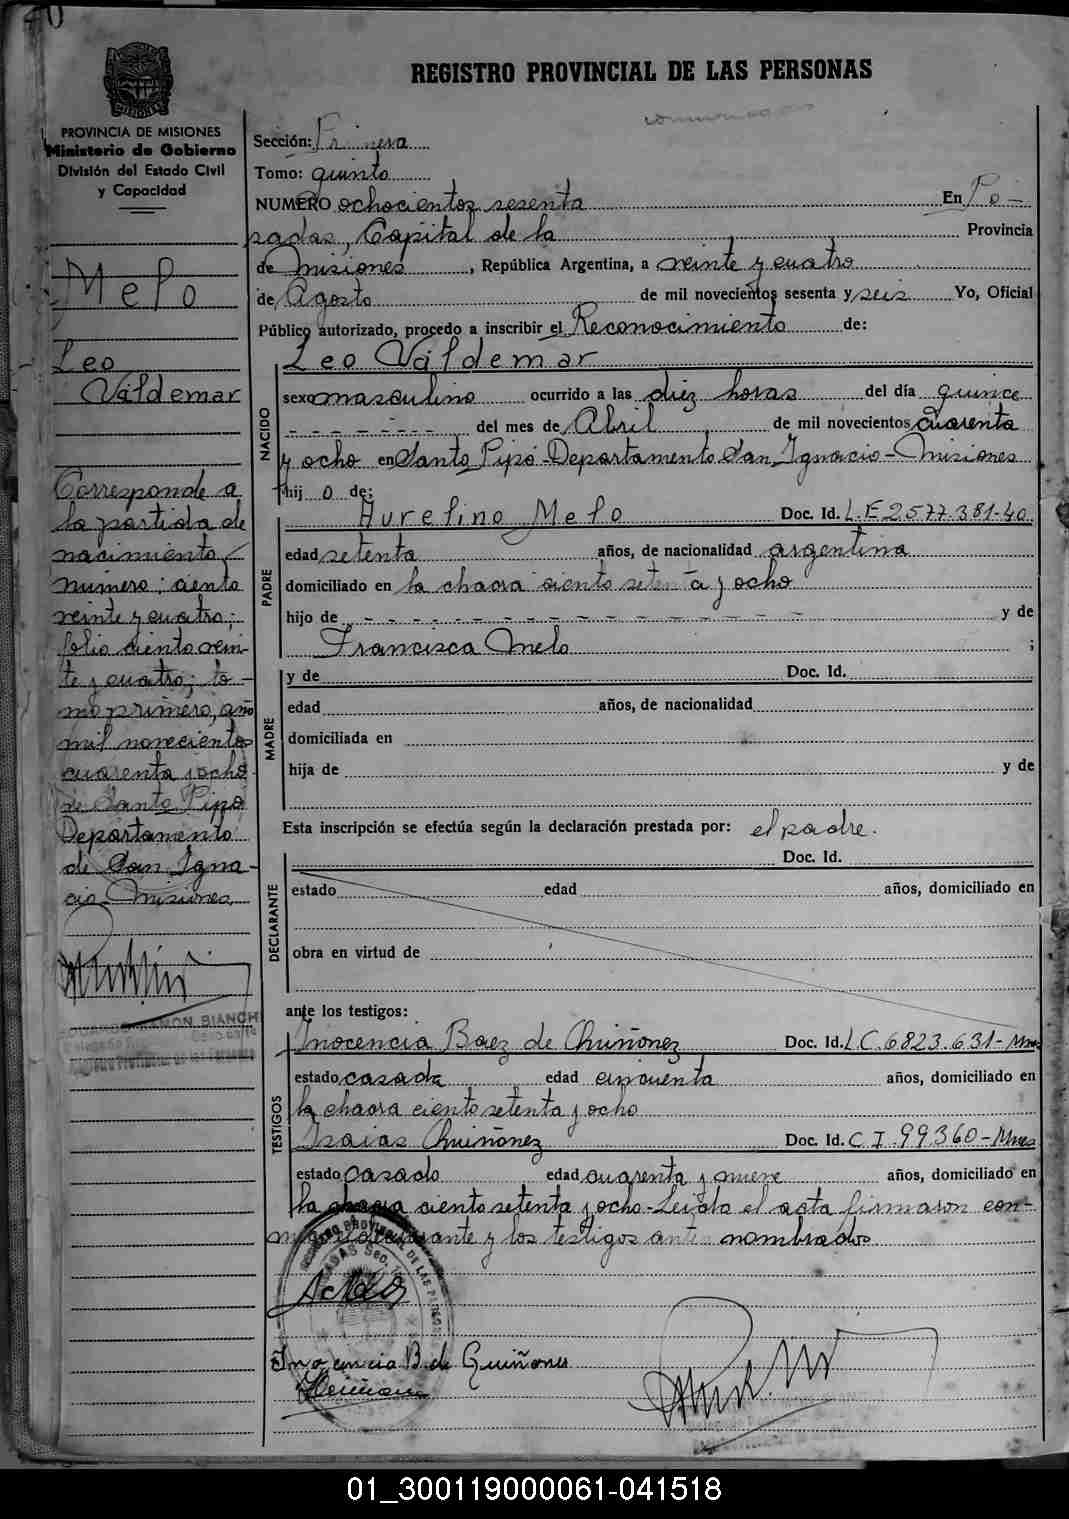 REGISTRO PROVINCIAL DE LAS PERSONAS
PROVINCIA DE MISIONES
Ministerio de Gobierno
División del Estado Civil
y Capacidad
Melo
Leo
Valdemar
Corresponde a
la partida de
nacimiento
número: ciento
veinte y cuatro;
folio ciento vein-
te y cuatro; to-
mo primero, año
mil novecientos
cuarenta y ocho
de Santo Pipó
Departamento
de San Igna-
cio - Misiones
RAMON BIANCHI
Sección: Primera
Tomo: quinto
NUMERO ochocientos sesenta En Po-
sadas, Capital de la Provincia
de Misiones, República Argentina, a veinte y cuatro
de Agosto de mil novecientos sesenta y seis Yo, Oficial
Público autorizado, procedo a inscribir el Reconocimiento de:
NACIDO
Leo Valdemar
sexo masculino ocurrido a las diéz horas del día quince
del mes de Abril de mil novecientos cuarenta
y ocho en Santo Pipó - Departamento San Ignacio - Misiones
hij o de:
PADRE
Aurelino Melo Doc. Id. L.E 2577.381-40
edad setenta años, de nacionalidad argentina
domiciliado en la chacra ciento setenta y ocho
hijo de - - - - - - - - - - - - y de
Francisca Melo ;
MADRE
y de Doc. Id.
edad años, de nacionalidad
domiciliada en
hija de y de
Esta inscripción se efectúa según la declaración prestada por: el padre.
DECLARANTE
Doc. Id.
estado edad años, domiciliado en
obra en virtud de
ante los testigos:
TESTIGOS
Inocencia Baez de Quiñonez Doc. Id. L.C. 6823.631-Mnes
estado casada edad cincuenta años, domiciliado en
la chacra ciento setenta y ocho
Isaias Quiñonez Doc. Id. C.I. 99.360-Mnes
estado casado edad cuarenta y nueve años, domiciliado en
la chacra ciento setenta y ocho - Leída el acta firmaron con-
migo el declarante y los testigos antes nombrados
Inocencia B. de Quiñones
01_300119000061-041518